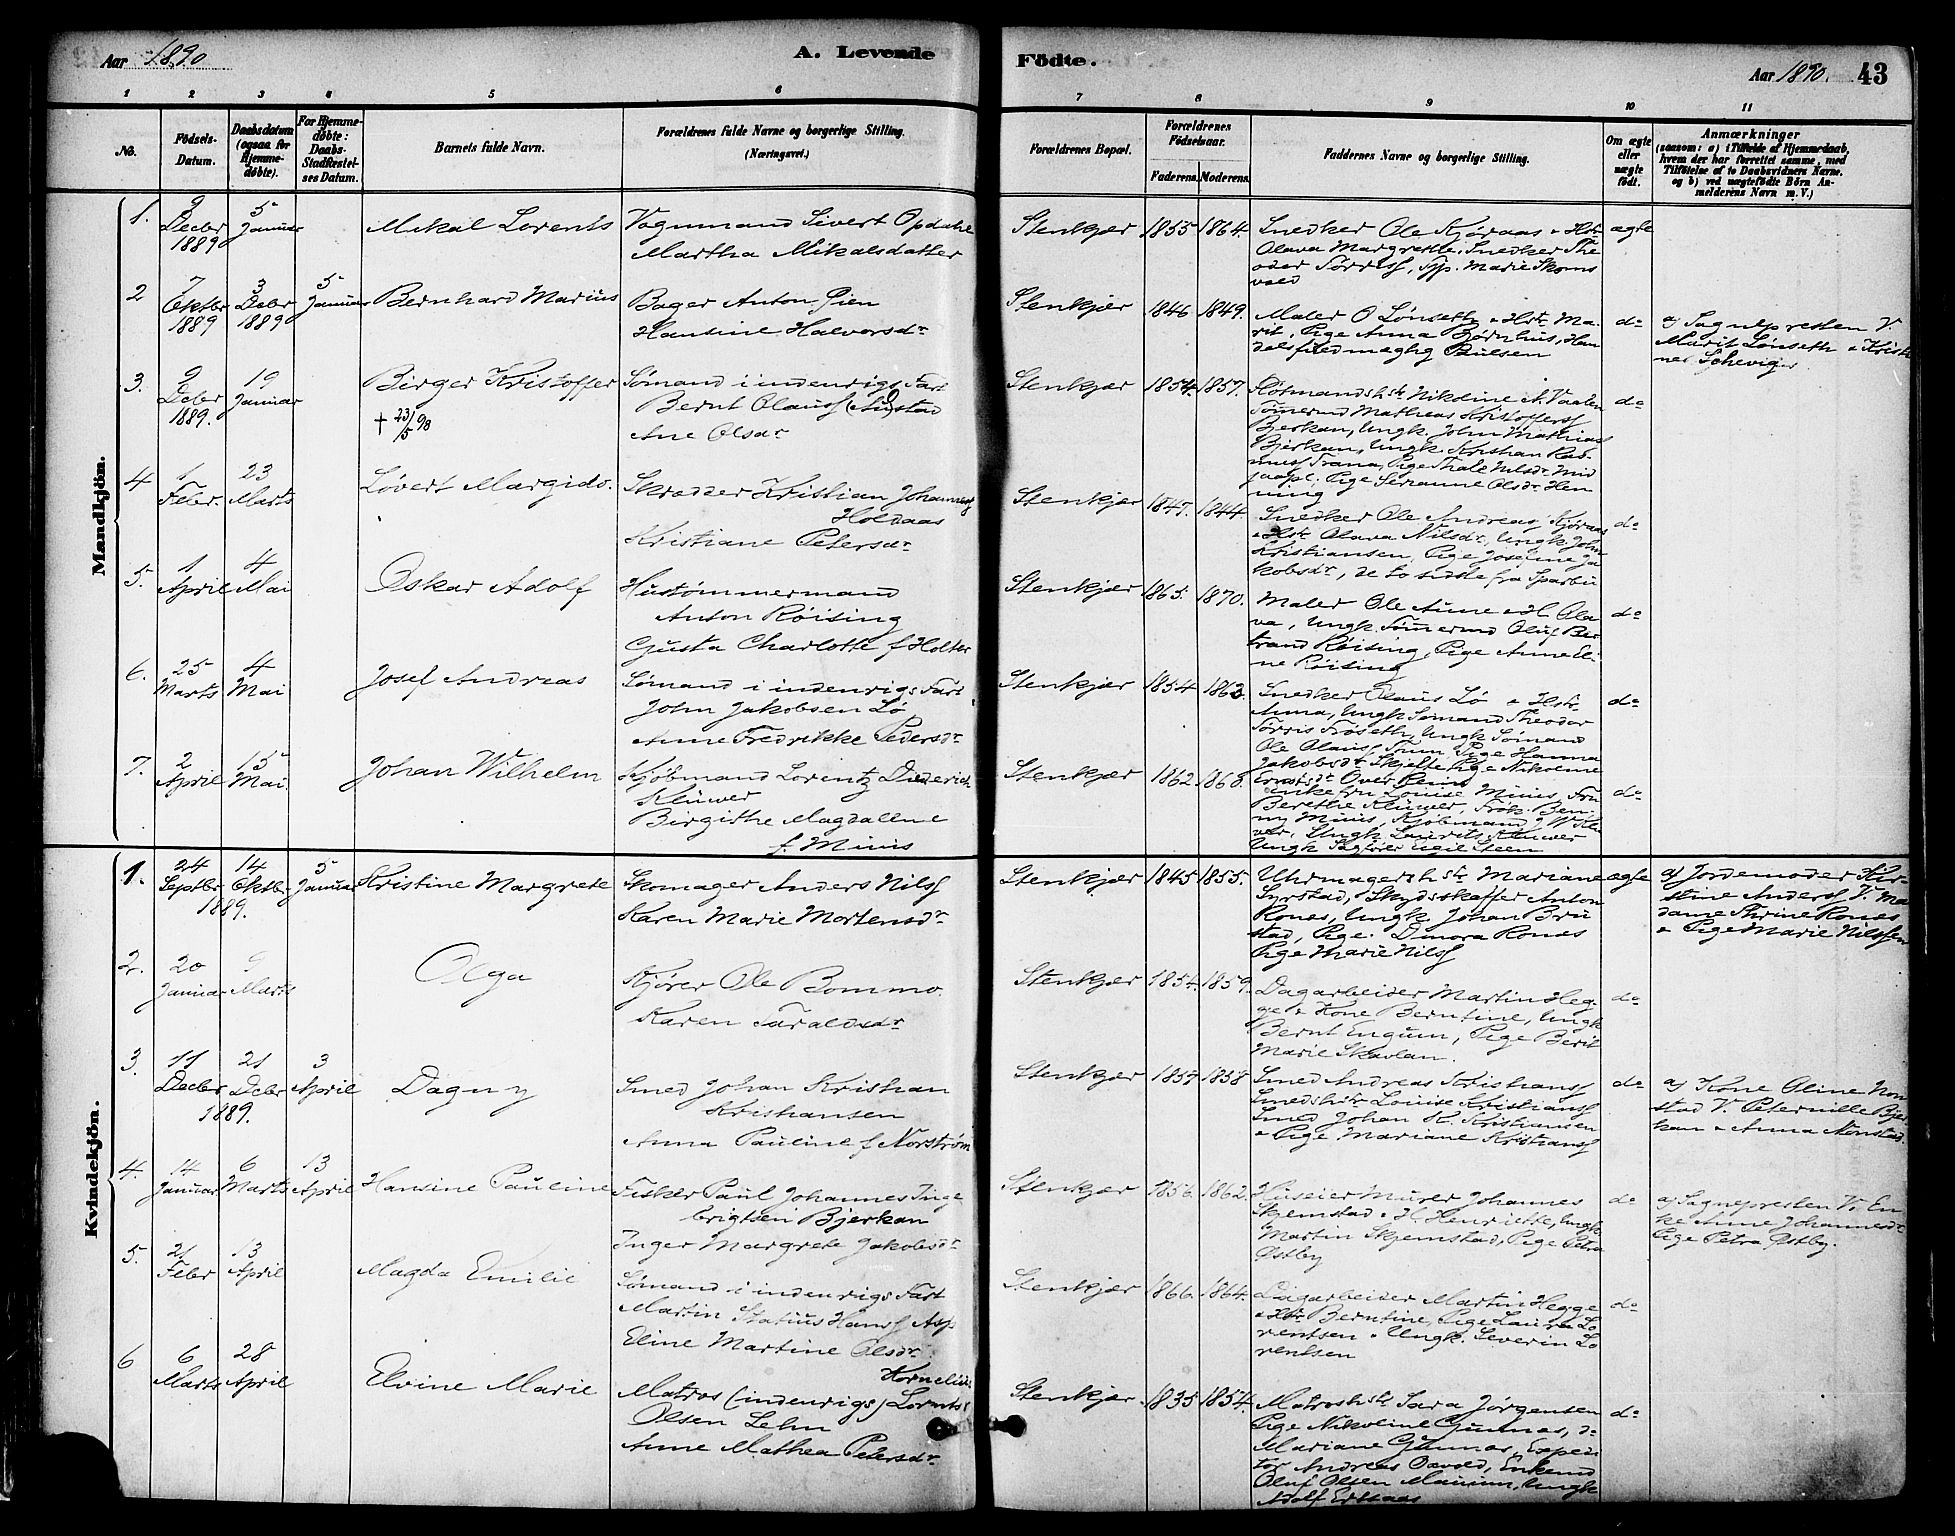 Aar 1890
A. Levende
Födte.
Aar 1890.
43
1 2 3 4 5 6 7 8 9 10 11
No.
Födsels-
Datum.
Daabsdatum
(ogsaa for
Hjemme-
døbte).
For Hjemme-
døbte:
Daabs-
Stadfæstel-
ses Datum.
Barnets fulde Navn.
Forældrenes fulde Navne og borgerlige Stilling.
(Næringsvei.)
Forældrenes Bopæl.
Forældrenes
Födselsaar.
Faderens. Moderens.
Faddernes Navne og borgerlige Stilling.
Om ægte
eller
uægte
födt.
Anmærkninger
(saasom: a) i Tilfælde af Hjemmedaab,
hvem der har forrettet samme, med
Tilföielse af to Daabsvidners Navne.
og b) ved uægtefödte Börn An-
melderens Navn m. V.)
Mandkjön.
1.
9 Decbr 1889
5 Januar
Mikal Lorents
Vognmand Sivert Opdahl
Martha Mikalsdatter
Stenkjær 1855 1864.
Snedker Ole Kjøraas & Hstr
Olava Margrethe, Snedker The
odor Tørriss, Pige Marie Skoms
vold
ægte
2
7 Oktbr 1889
3 Decbr 1889
5 Januar
Bernhard Marius
Bager Anton Øien
Hansine Halvorsdr
Stenkjær 1846 1849.
Maler O Lønseth & Hstr Ma-
rit, Pige Anna Bjørnhus, Han
delsfuldmægtig Bülsen
do
a) Sognepresten V.
Marit Lønseth & Kristi
ner Schevig
3.
9 Decbr 1889.
19 Januar
Birger Kristoffer
† 23/5 98
Sømand i indenrigs Fart
Bernt Olauss Austad
Ane Olsdr
Stenkjær 1854. 1857.
Mathias Kristoffers
Bjerkan, Ungk. John Mathias
Bjerkan, Ungk. Kristian Ras
muss Trana, Pige Thale Nilsdr
Pige Serianne Olsdr Hen
ning
do
4
1 Febr.
23 Marts
Løvert Margido.
Skrædder Kristian Johanness
Holdaas
Kristiane Petersdr
Stenkjær 1847. 1844.
Snedker Ole Andreas Kjøraas
& Hstr Olava Nilsdr, Ungk John
Kristiansen, Pige Josefine Ja
kobsdr, de to sidste fra Sparbu
do
5.
1 April
4 Mai
Oskar Adolf
Hustømmermand
Anton Røising
Gusta Charlotte f Holter
Stenkjær 1865. 1870.
Maler Ole Aune & H. Ola
va, Ungk. Tømermd Oluf Ber
trand Røising, Pige Anne Eli
ne Røising
do
6.
25 Marts
4 Mai
Josef Andreas
Sømand i indenrigs Fart
John Jakobsen Lø
Anne Fredrikke Pedersdr
Stenkjær 1854 1863.
Snedker Olaus Lø & Hstr
Anna, Ungk Sømand Theodor
Tørris Frøseth, Ungk Sømand
Ole Olaus Pige Hanna
Jakobsdr Skjelte Pige Nikoline
Ernstsdr Over Reins
do
7.
2 April
15 Mai.
Johan Wilhelm
Kjøbmand Lorentz Diderich
Klüwer
Birgithe Magdalene
f. Minis
Stenkjær 1862 1868.
Enkefru Louise Minis, Fru
Berethe Klüwer, Frøk. Ben-
ny Minis, Kjøbmand J W Klü
wer, Ungk Laurits Klüwer
Ungk Sagfører Eugil Steen
do
Kvindekjön.
1.
24 Septbr 1889.
14 Oktbr.
5 Januar
Kristine Margrete
Skomager Anders Nilss
Karen Marie Mortensdr
Stenkjær 1845 1855.
Uhrmagersh str Mariane
Syrstad, Skydsskaffer Anton
Rones, Ungk. Johan Brü
stad, Pige Dinora Rones
Pige Marie Nilss
ægte
a) Jordemoder Kir-
stine Anderss V. Ma
dame Thrine Rones
& Pige Marie Nilssen
2.
20 Januar
9 Marts
Olga
Kjører Ole Bommo.
Karen Taraldsdr
Stenkjær 1854. 1859.
Dagarbeider Martin Heg-
ge & Kone Berntine, Ungk
Bernt Engum, Pige Berit
Marie Skavlan.
do
3.
11 Decbr 1889.
21 Decbr
3 April
Dagny
Smed Johan Kristian
Kristiansen
Anna Pauline f Norstrøm
Stenkjær 1857 1858
Smed Andreas Kristianss
Smedshstr Louise Kristianss
Smed Johan K. Kristiansen
& Pige Mariane Kristianss
do
a) Kone Oline Non
stad V. Peternille Bjer
kan & Anna Nonstad.
4.
14 Januar
6 Marts
13 April
Hansine Pauline
Fisker Paul Johannes Inge
brigtsen Bjerkan
Inger Margrete Jakobsdr
Stenkjær 1856. 1862.
Huseier Murer Johannes
Skjemstad & H. Henriette, Ungk
Martin Skjemstad, Pige Petra
Østby
do
a) Sognepresten V. En
ke Anne Johannesdr
Pige Petra Østby.
5.
21 Febr
13 April
Magda Emilie
Sømand i indenrigs Fart
Martin Statius Hanss Asp
Eline Martine Olsdr
Stenkjær 1866. 1864.
Dagarbeider Martin Hegge
& Hstr Berntine, Pige Laura Lo
rentsen & Ungk. Severin Lo
rentsen
do
6
6 Marts
28 April
Elvine Marie
Kornelius
Matros (indenrigs) Lornts
Olsen Lehn
Anne Mathea Petersdr
Stenkjær 1835 1854.
Matroshstr Sara Jørgensen
Pige Nikoline Gunnas, do
Mariane Gunnas, Expedi
tør Andreas Oxvold, Enkemd
Oluf Olsen Ungk
Adolf
do